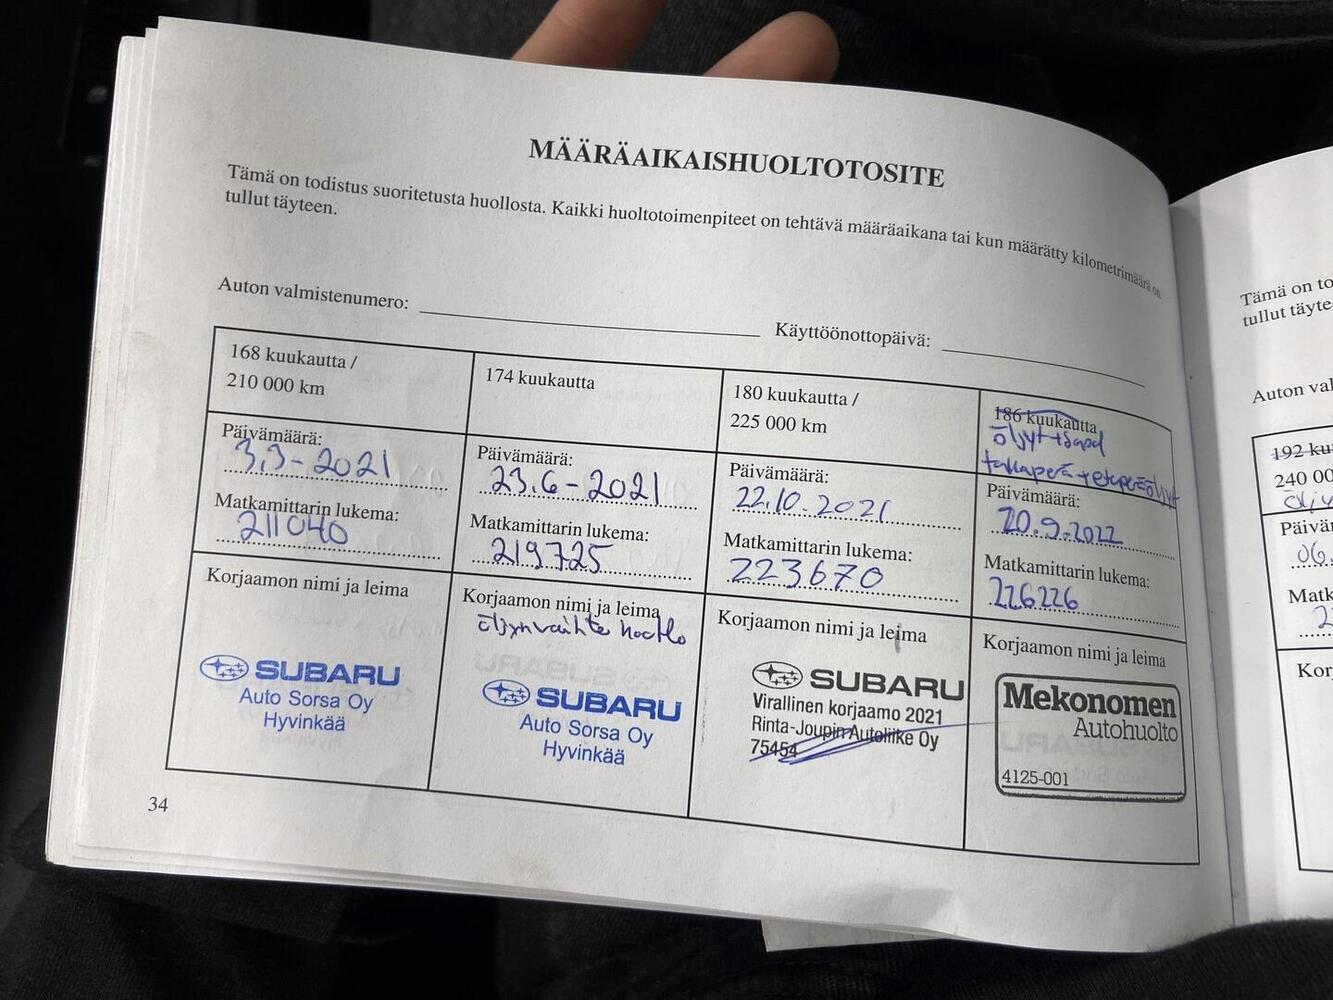 MÄÄRÄAIKAISHUOLTOTOSITE
Tämä on todistus suoritetusta huollosta. Kaikki huoltotoimenpiteet on tehtävä määräaikana tai kun määrätty kilometrimäärä on
tullut täyteen.
Auton valmistenumero:
Käyttöönottopäivä:
168 kuukautta /
210 000 km
Päivämäärä:
3.3-2021
Matkamittarin lukema:
211040
Korjaamon nimi ja leima
SUBARU
Auto Sorsa Oy
Hyvinkää
174 kuukautta
Päivämäärä:
23.6-2021
Matkamittarin lukema:
219725
Korjaamon nimi ja leima
öljynvaihto huolto
SUBARU
Auto Sorsa Oy
Hyvinkää
180 kuukautta /
225 000 km
Päivämäärä:
22.10.2021
Matkamittarin lukema:
223670
Korjaamon nimi ja leima
SUBARU
Virallinen korjaamo 2021
Rinta-Joupin Autoliike Oy
75454
186 kuukautta
öljyt +
takaperä + etuperäöljyt
Päivämäärä:
20.9.2022
Matkamittarin lukema:
226226
Korjaamon nimi ja leima
Mekonomen
Autohuolto
4125-001
34
Tämä on to
tullut täyte
Auton val
192 ku
240 00
öljy
Päivär
06.
Matk
2
Kor